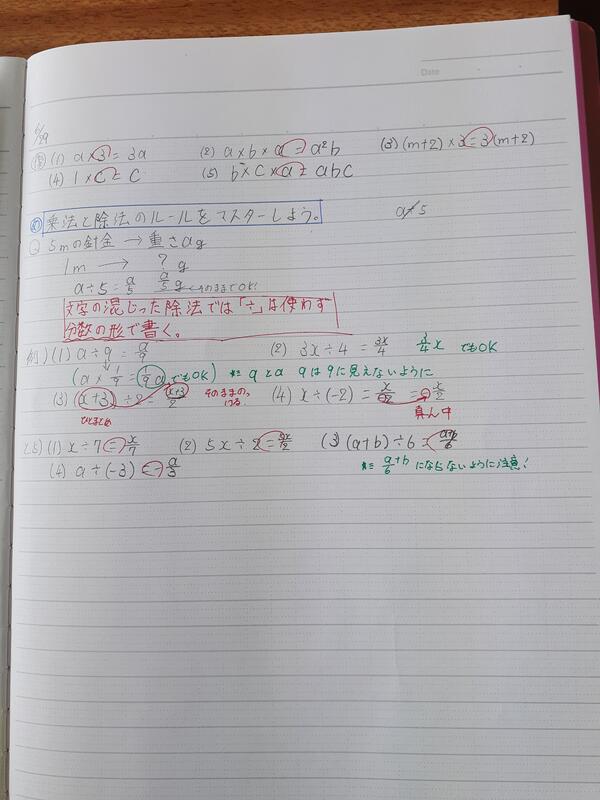 Date
6/29
復 (1) a×3=3a (2) a×b×a=a²b (3) (m+2)×3=3(m+2)
(4) 1×c=c (5) b×c×a=abc
乗法と除法のルールをマスターしよう。 a≠5
5mの針金 → 重さag
1m → ? g
a÷5=a/5 a/5 g ← そのままでOK!
文字の混じった除法では「÷」は使わず
分数の形で書く。
例) (1) a÷9=a/9 (2) 3x÷4=3x/4 3/4x でもOK
(a×1/9=1/9a でもOK) ※ 9とa 9は9に見えないように
(3) (x+3)÷2=(x+3)/2 そのままのっける (4) x÷(-2)=x/-2=-x/2
ひとまとめ 真ん中
(1) x÷7=x/7 (2) 5x÷2=5x/2 (3) (a+b)÷6=a+b/6
(4) a÷(-3)=-a/3 ※ a/6+b にならないように注意!